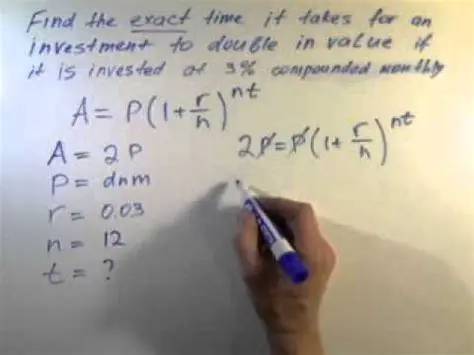 Find the exact time it takes for an
investment to double in value if
it is invested at 3% compounded monthly
A = P(1+r/n)^nt
A = 2P
2P=P(1+r/n)^nt
P = dnm
r = 0.03
n = 12
t = ?